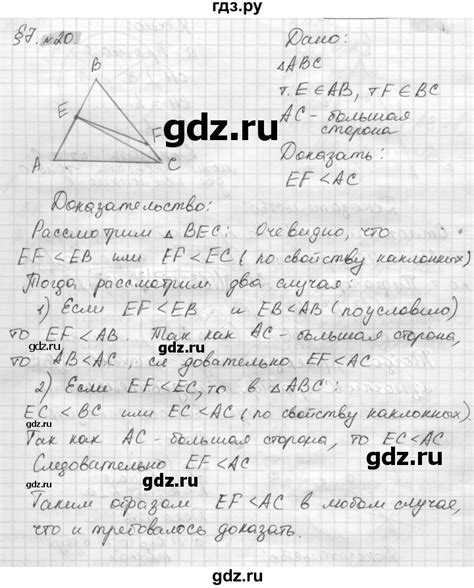 гдз.ру
§7. №20.
Дано:
△ABC
т. E ∈ AB, т F ∈ BC
AC - большая
сторона
Доказать:
EF < AC
B
E
F
A
C
gdz.ru
Доказательство:
Рассмотрим △ BEC: Очевидно, что
EF < EB или EF < EC (по свойству наклонных)
Тогда рассмотрим два случая:
1) Если EF < EB и EB < AB (по условию)
то EF < AB. Так как AC - большая сторона,
то AB < AC, следовательно EF < AC
gdz.ru
2) Если EF < EC, то в △ABC:
EC < BC или EC < AC (по свойству наклонных).
Так как AC - большая сторона, то EC < AC
gdz.ru
gdz.ru
Следовательно EF < AC
Таким образом EF < AC в любом случае,
что и требовалось доказать.
gdz.ru